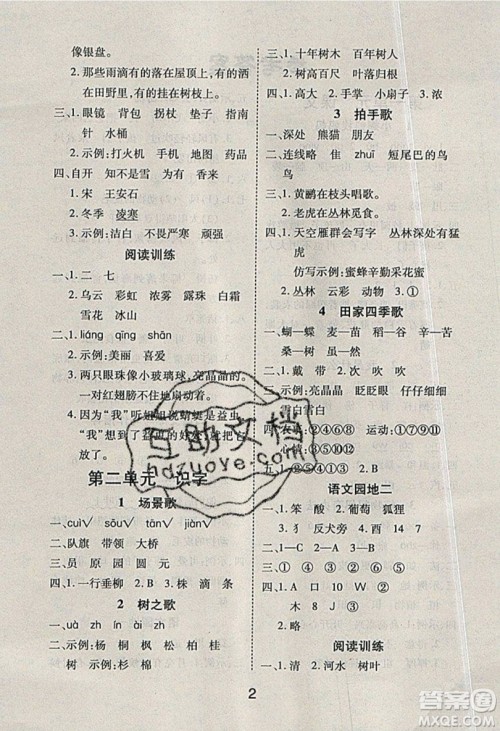 像银盘。
2. 那些雨滴有的落在屋顶,有的洒
在田野里,有的挂在树枝上。
三、1. 眼镜 背包 拐杖 垫子 指南
针 水桶
2. 示例:打火机 手机 地图 药品
四、自开 知不是雪 为有 香来
1. 宋 王安石
2. 冬季 凌寒
3. 示例:洁白 不畏严寒 顽强
阅读训练
一、1. 二 七
2. 乌云 彩虹 浓雾 露珠 白霜
雪花 冰山
二、1. liáng qīng shān
2. 示例:美丽 喜爱
3. 两只眼珠像小玻璃球,亮晶晶的。
一对红翅膀不住地扇动着。
4. 因为“我”听姐姐说蜻蜓是益虫,
放了。
第二单元 识字
1 场景歌
一、zhōu√ xiù√ tíng√ jiàn√
二、队旗 带领 大桥
三、员 原 园 圆 元
四、1. 一行垂柳 2. B 3. 株 滴 条
2 树之歌
一、uà zú ín ài zh
二、示例:杨 桐 枫 松 柏 桂
三、示例:树 杉 棉
三、1. 十年树木 百年树人
2. 树高百尺 叶落归根
四、1. A 2. 手掌 小扇子 3. 浓
3 拍手歌
一、深处 熊猫 朋友
二、连线略 佳 zhuī 短尾巴的鸟
鸟
三、1. 黄鹂在枝头唱歌。
2. 老虎在丛林觅食。
四、1. 天空雁群会写字 丛林深处有猛
虎
仿写示例:蜜蜂蜂房采蜜忙
2. 丛林 动物 3. ①
4 田家四季歌
一、蝴—蝶 麦—苗 稻—谷 辛—苦
桑—树 虽—然
二、1. 戴 带 2. 次 吹 歌
三、示例:亮晶晶 眨眨眼 仔仔细细
雪白雪白
四、农活:②④⑥⑧ 运动:①③⑤⑦
五、1. ②⑤④①③ 2. B
语文园地二
一、1. 柏 笨 2. 葡萄 狐狸
3. 犭 反犬旁
二、①—B ②—C ③—A
三、① ④ ③ ⑥ ② ⑤
四、1. A 口 W ② 一
木 8 J ①
2. 略
阅读训练
一、1. 清 2. 河水 树叶
2
互助文档
hdzuoye.com
答案圈
MXQE.COM